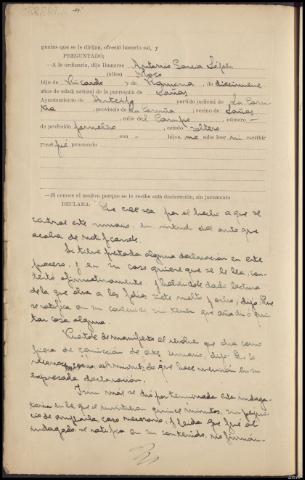 guntas que se le dirijan, ofreció hacerlo así, y
PREGUNTADO:
—A lo ordinario, dijo llamarse Antonio
(alias) Moso
hijo de Ricardo y de Ramona, de diecinueve
años de edad, natural de la parroquia de Sañas
Ayuntamiento de Arteijo partido judicial de La Coru-
ña, provincia de La Coruña, vecino de Sañas
calle del Campo, número —
de profesión jornalero, estado soltero
con — hijos, no sabe leer, ni escribir
y no fué procesado
—Si conoce el motivo porque se le recibe esta declaración, sin juramento
DECLARA: Que cree sea por el hecho a que se
contrae este sumario, en virtud del auto que
acaba de notificarsele.
Si tiene prestada alguna declaracion en este
proceso, y en su caso quiere que se le lea, con-
testó afirmativamente. Y habiendole dado lectura
de la que obra a los folios siete vuelto y ocho, dijo: Que
se ratifica en su contenido sin tener que añadir ni qui-
tar cosa alguna.
Puesto de manifiesto el que obra como
pieza de conviccion de este sumario, dijo: Que lo
reconoce como el mismo de que hace mencion en su
expresada declaracion.
Y sin mas se dió por terminada esta indaga-
toria en la que se invirtieron quince minutos, sin perjui-
cio de ampliarla caso necesario, y leida que fué al
indagado se ratifica en su contenido, no firman-